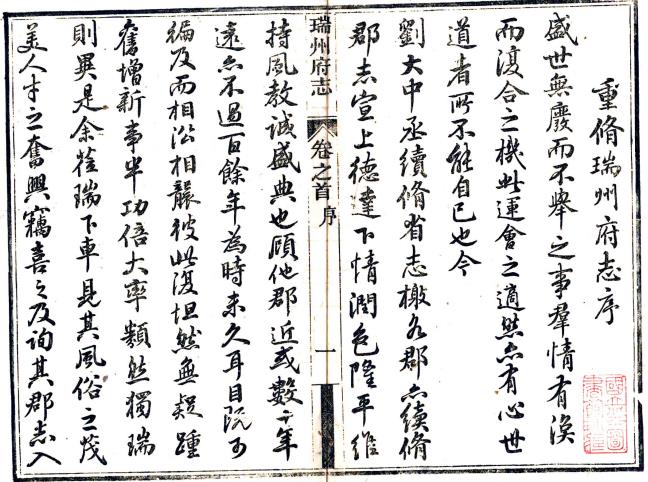 重脩瑞州府志序
盛世無廢而不舉之事羣情有渙
而復合之機此運會之適然亦有心世
道者所不能自已也今
劉大中丞續脩省志檄各郡亦續脩
郡志宣上德達下情潤色隆平維
瑞州府志 卷之首 序 一
持風教誠盛典也顧他郡近或數十年
遠亦不過百餘年為時未久耳目既可
徧及而相沿相襲彼此復坦然無疑踵
舊增新事半功倍大率類然獨瑞
則異是余莅瑞下車見其風俗之茂
美人才之奮興竊喜之及詢其郡志入